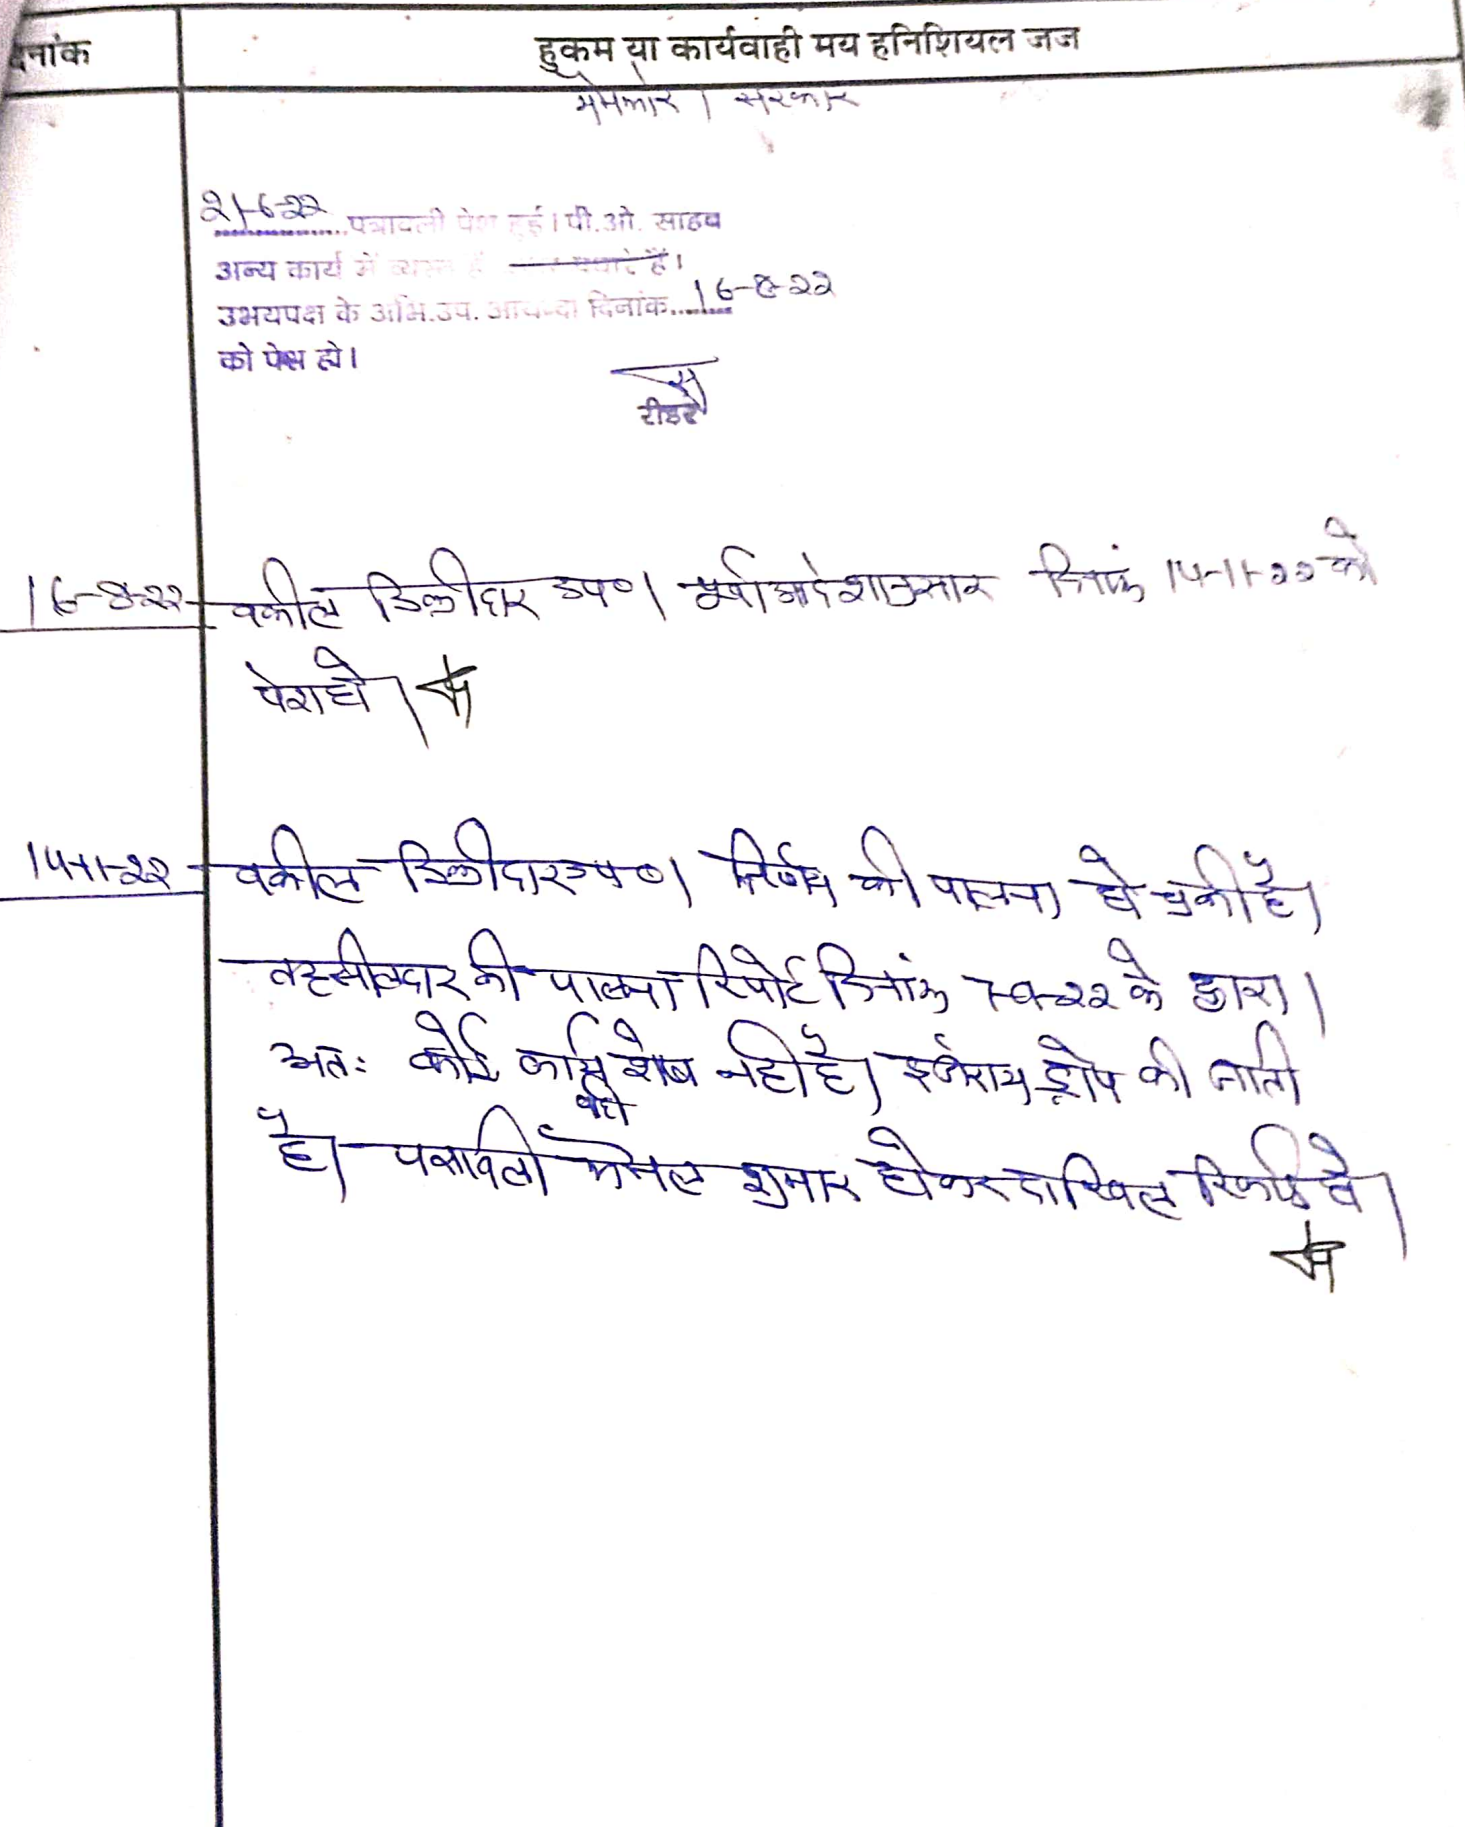 दिनांक
हुकम या कार्यवाही मय इनिशियल जज
सरकार
21-6-22 पत्रावली पेश हुई। पी.ओ. साहब
अन्य कार्य में व्यस्त हैं पधारे हैं।
उभयपक्ष के अभि.उप. आयन्दा दिनांक 16-8-22
को पेश हो।
रीडर
16-8-22 वकील डिक्रीदार उप०। पूर्व आदेशानुसार दिनांक 14-11-22 को
पेश हो।
14-11-22 वकील डिक्रीदार उप०। निर्णय की पालना हो चुकी है।
तहसीलदार की पालना रिपोर्ट दिनांक के द्वारा।
अतः कोई कार्य शेष नहीं है। इजेराय ड्रोप की जाती
है। पत्रावली फैसल शुमार होकर दाखिल रिकॉर्ड हो।